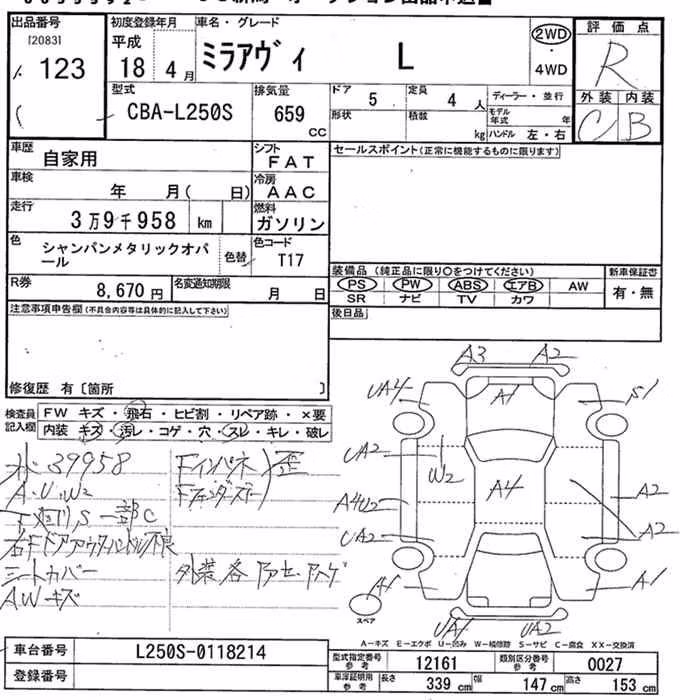 出品番号
[2083]
123
初度登録年月
平成
18 4月
車名・グレード
ミラアヴィ L
2WD
・
4WD
評価点
R
外装 内装
C B
型式
CBA-L250S
排気量
659
CC
ドア
5
定員
4 人
ディーラー・並行
形状
積載
kg
モデル年式 年
ハンドル 左・右
車歴
自家用
シフト
FAT
セールスポイント(正常に機能するものに限ります)
車検
年 月( 日)
冷房
AAC
走行
3万9千958 km
燃料
ガソリン
色
シャンパンメタリックオパール
色替
色コード
T17
装備品 (純正品に限り○をつけてください)
新車保証書
PS PW ABS エアB AW
有・無
SR ナビ TV カワ
R券
8,670円
名変通知期限
月 日
後日品
注意事項申告欄(不具合内容等は具体的に記入して下さい)
修復歴 有[箇所 ]
検査員記入欄
FW キズ・飛石・ヒビ割・リペア跡・×要
内装 キズ・汚レ・コゲ・穴・スレ・キレ・破レ
39958
A・U・W2
下廻りS一部C
右Fドアアウターハンドル不良
シートカバー
AWキズ
Fインパネ)歪
外装各
A3 A2
UA4 A1 S1
UA2 W2
A4U2 A4 A2
UA2 A2
A1 A1
スペア
UA1 UA2
A-キズ E-エクボ U-凹み W-補修跡 S-サビ C-腐食 XX-交換済
車台番号 L250S-0118214
登録番号
型式指定番号 参考 12161
類別区分番号 参考 0027
車庫証明用 参考 長さ 339 cm 幅 147 cm 高さ 153 cm